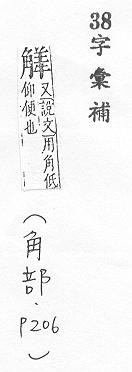 38字彙補
觲
又說文用角低
仰便也
(角部.
P206)